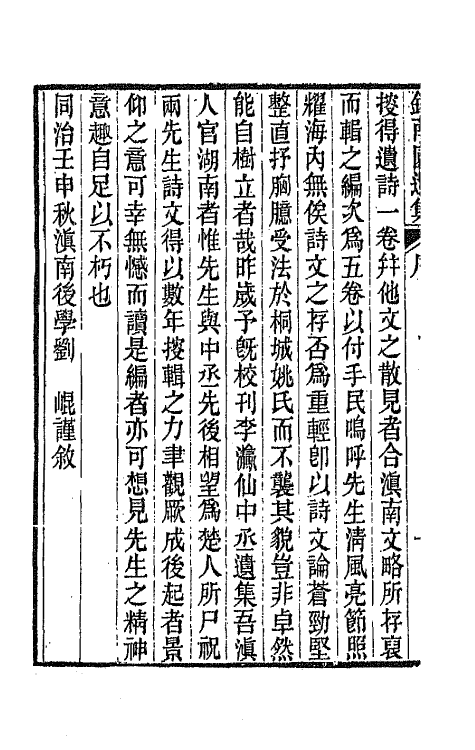 搜得遺詩一卷幷他文之散見者合滇南文略所存裒
而輯之編次爲五卷以付手民嗚呼先生淸風亮節照
耀海內無俟詩文之存否爲重輕卽以詩文論蒼勁堅
整直抒胸臆受法於桐城姚氏而不襲其貌豈非卓然
能自樹立者哉昨歲予旣校刊李瀛仙中丞遺集吾滇
人官湖南者惟先生與中丞先後相望爲楚人所尸祝
兩先生詩文得以數年搜輯之力聿觀厥成後起者景
仰之意可幸無憾而讀是編者亦可想見先生之精神
意趣自足以不朽也
同治壬申秋滇南後學劉　崐謹敘